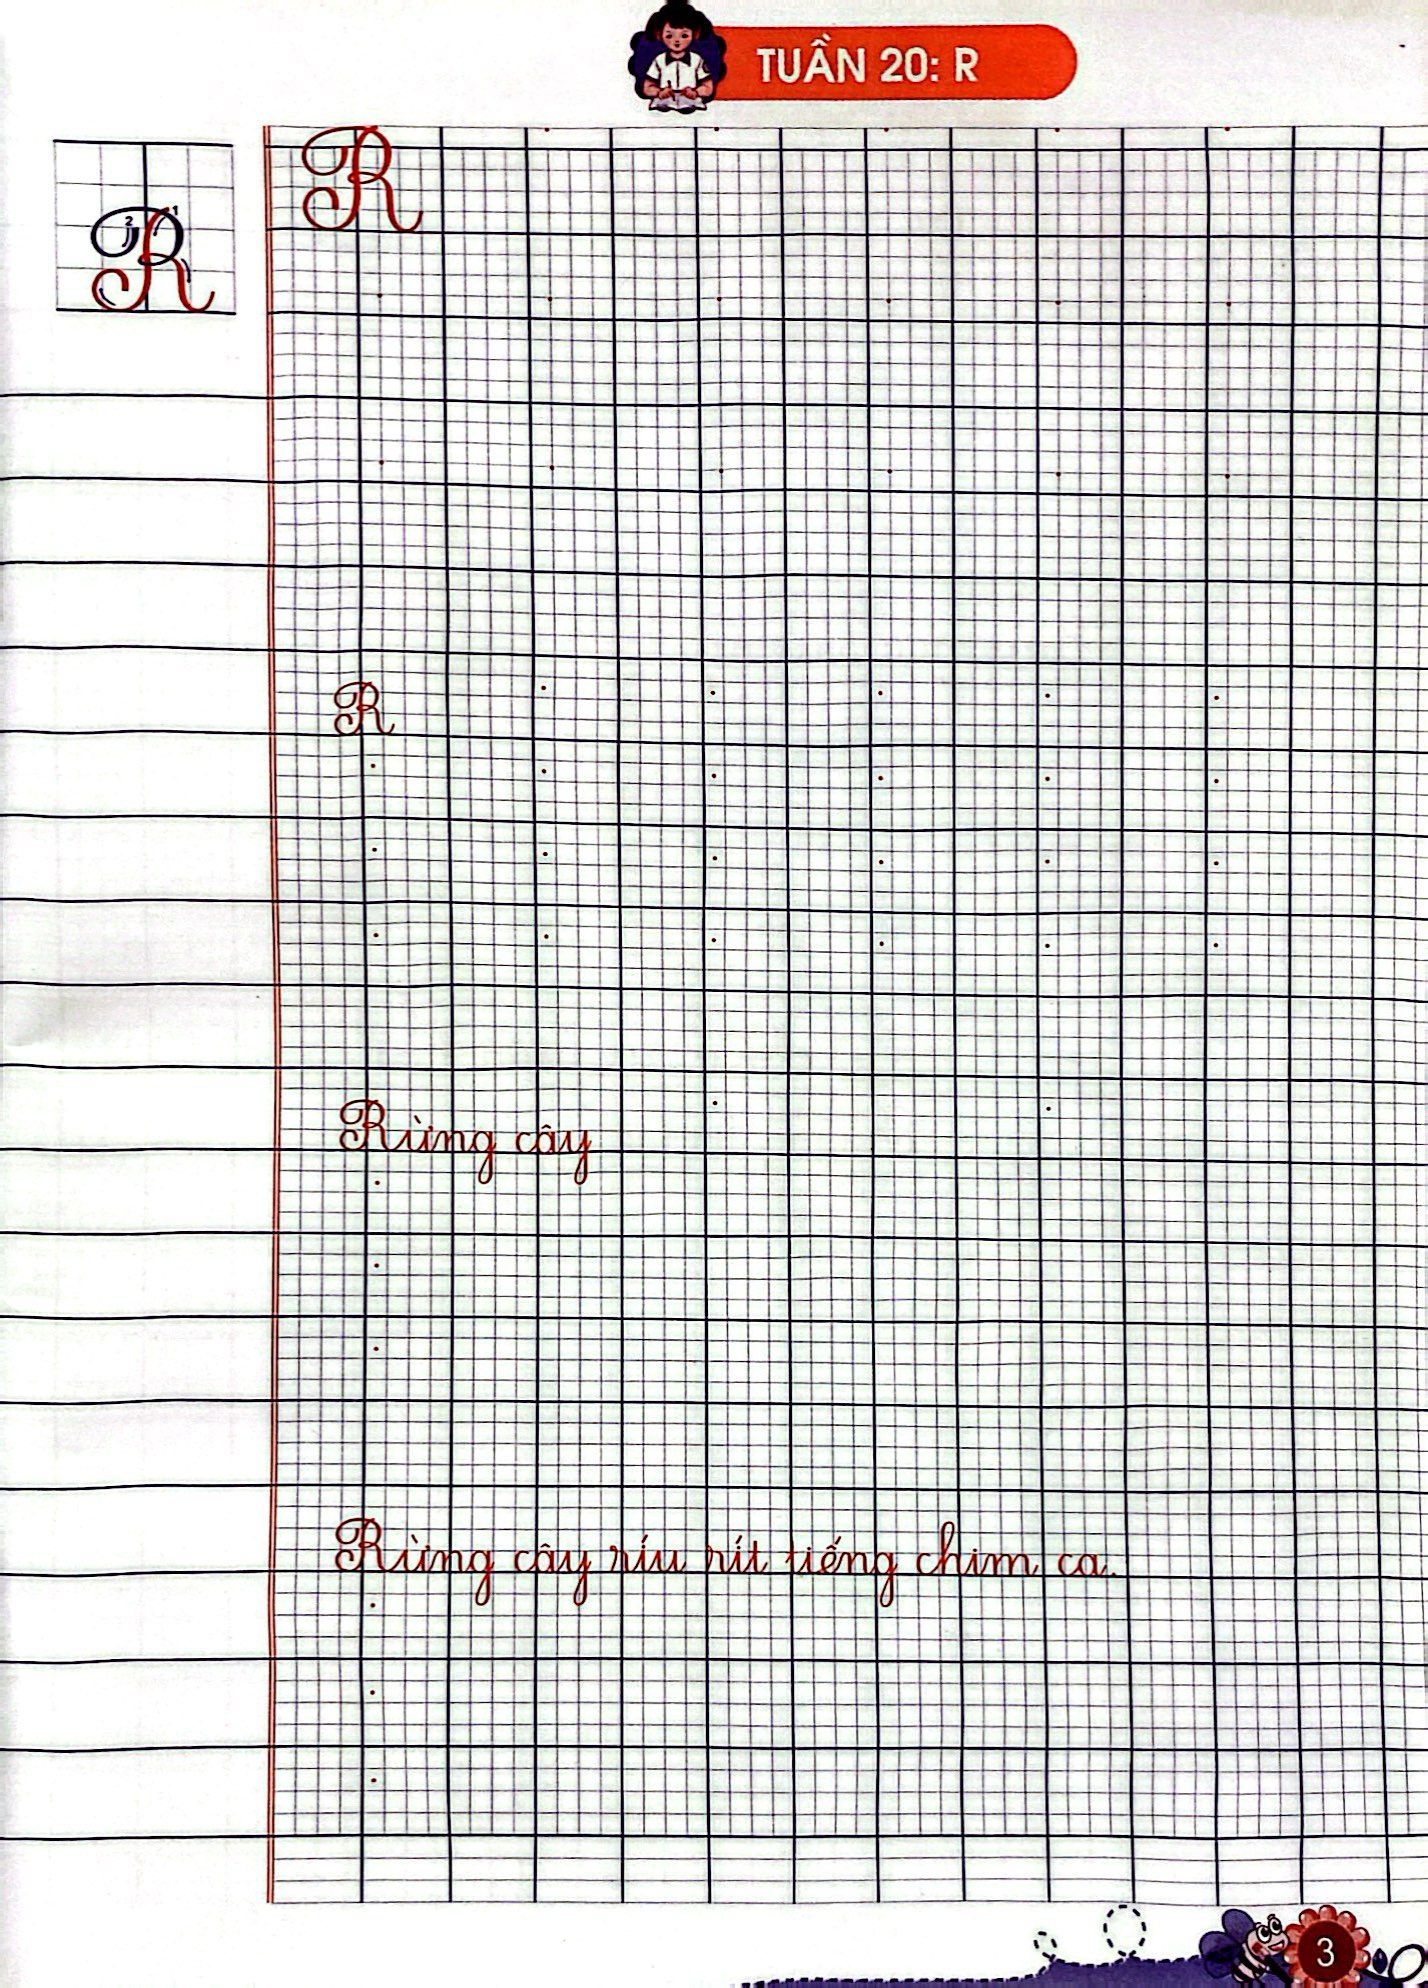 TUẦN 20: R
R
2 1
R
R
Rừng cây
Rừng cây ríu rít tiếng chim ca.
3